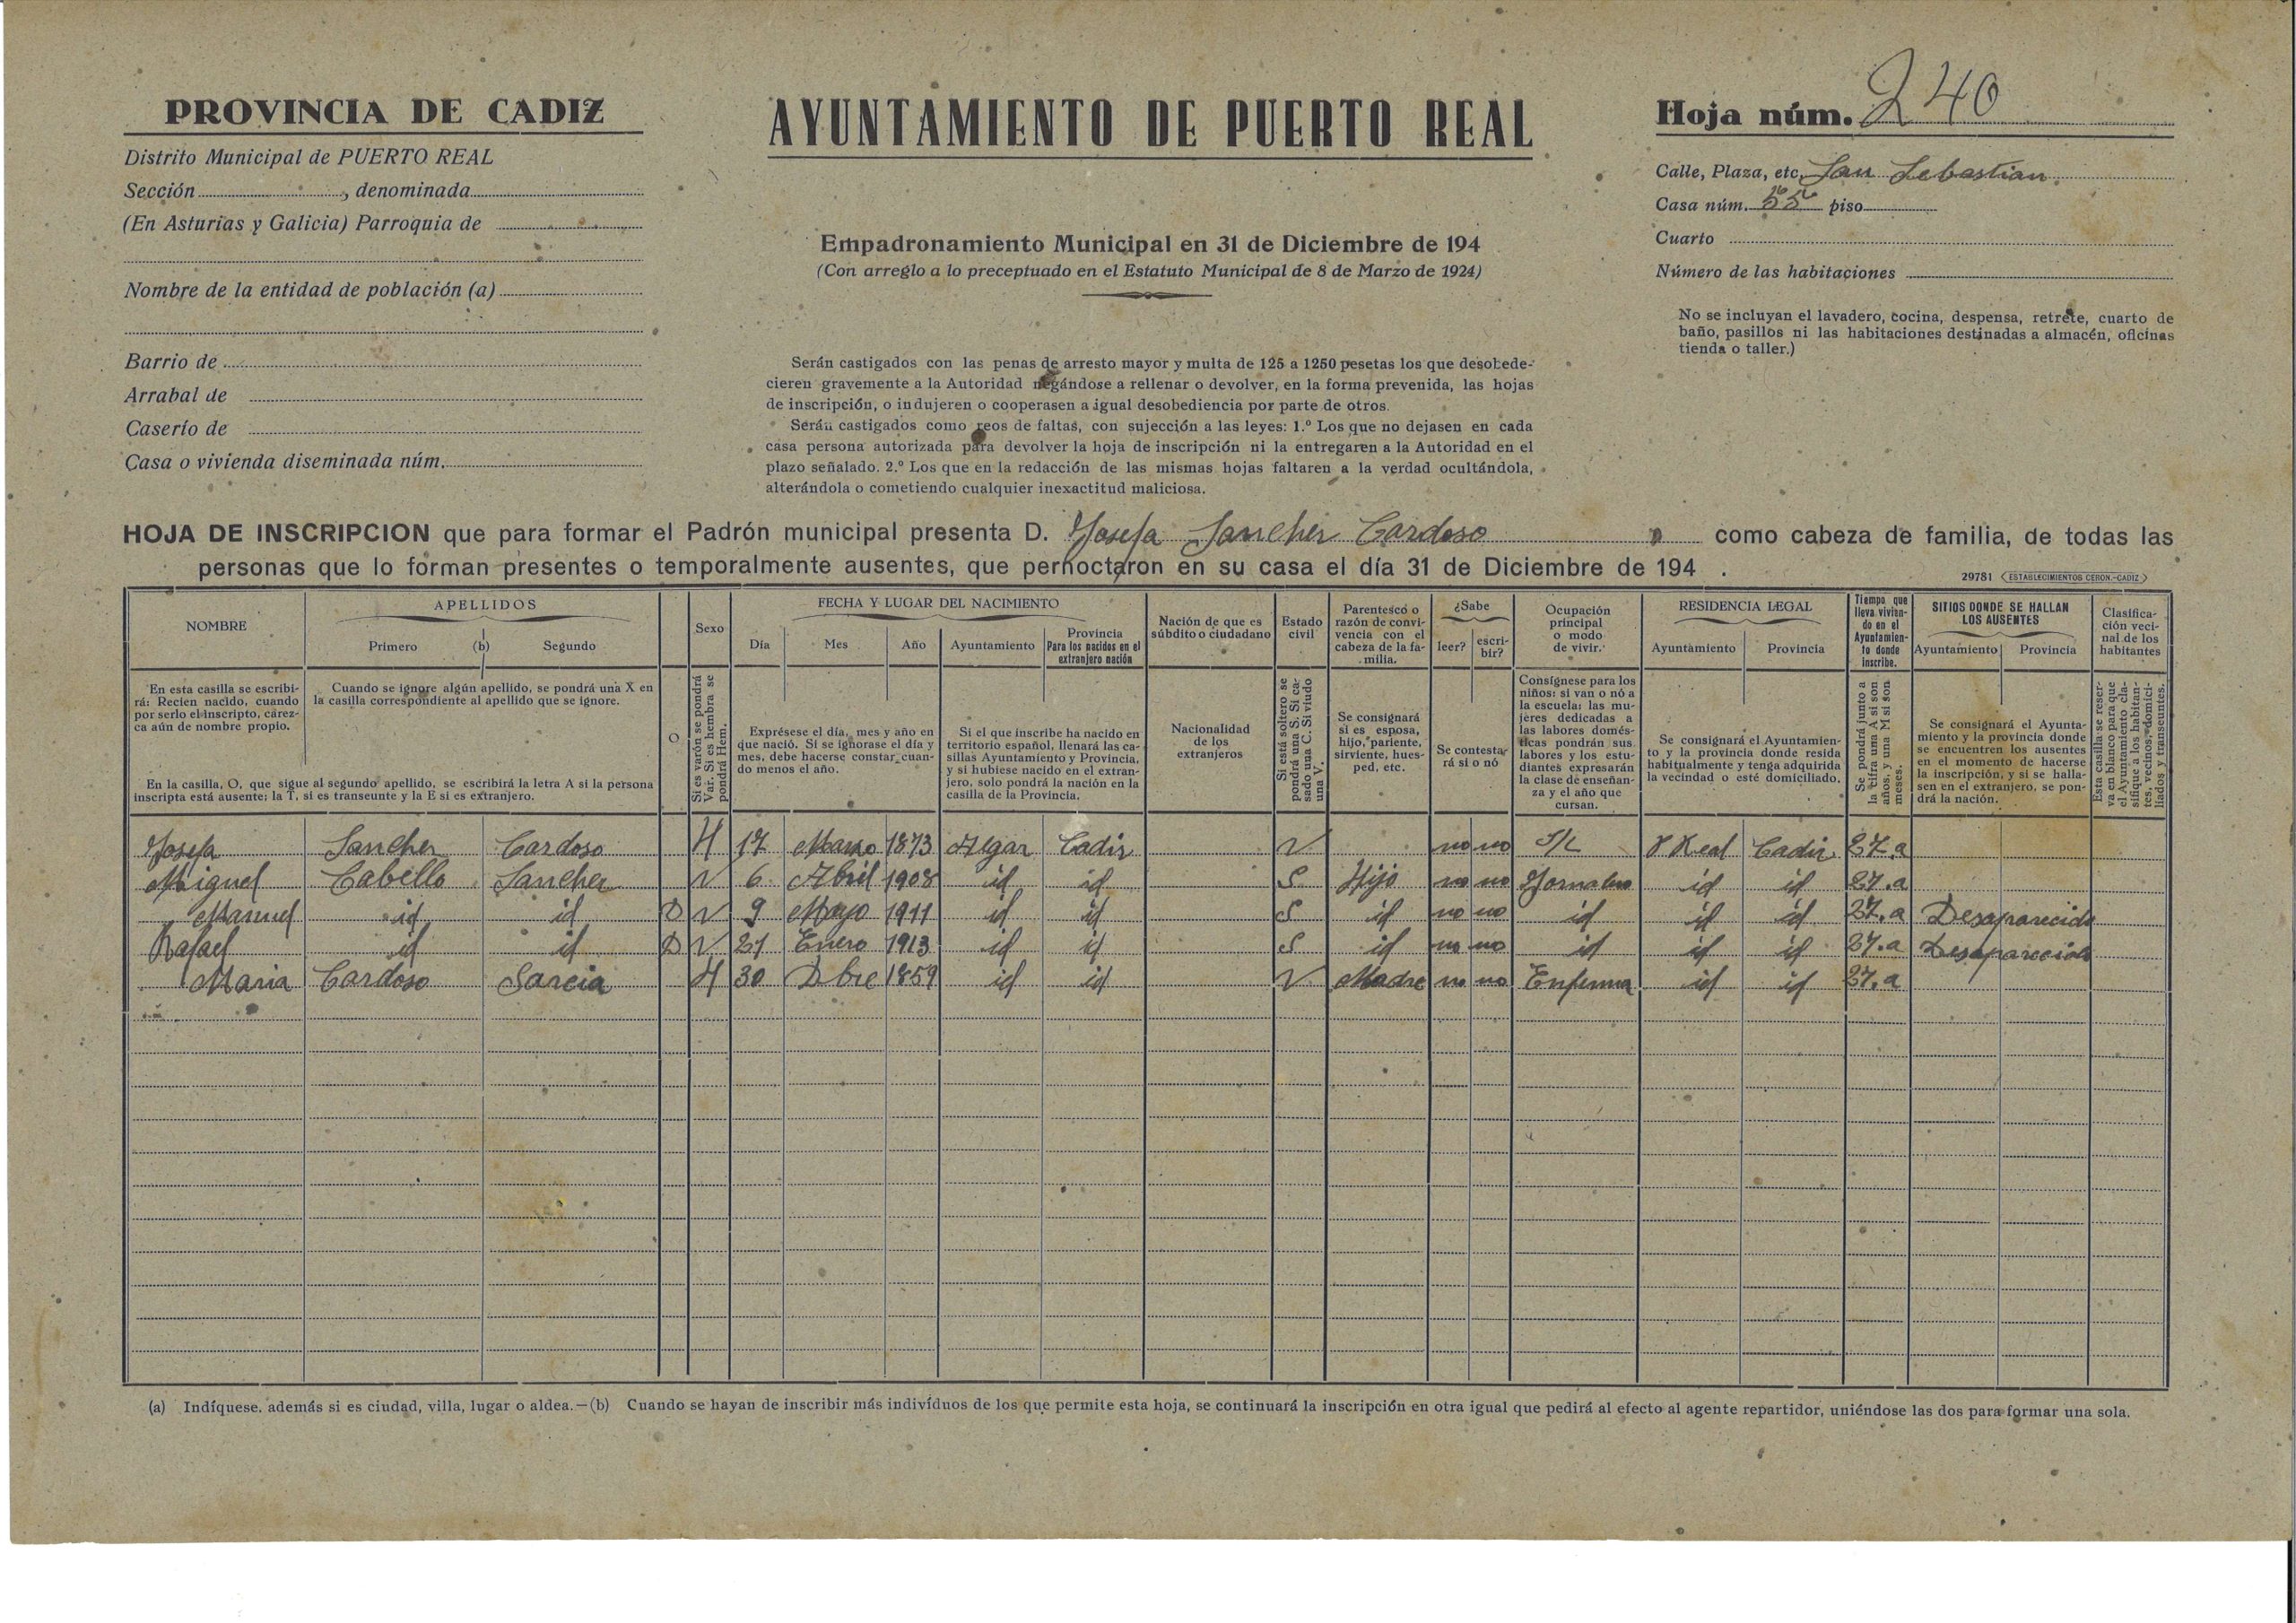 PROVINCIA DE CADIZ
Distrito Municipal de PUERTO REAL
Sección , denominada
(En Asturias y Galicia) Parroquia de
Nombre de la entidad de población (a)
Barrio de
Arrabal de
Caserío de
Casa o vivienda diseminada núm.
AYUNTAMIENTO DE PUERTO REAL
Empadronamiento Municipal en 31 de Diciembre de 194
(Con arreglo a lo preceptuado en el Estatuto Municipal de 8 de Marzo de 1924)
Serán castigados con las penas de arresto mayor y multa de 125 a 1250 pesetas los que desobede-
cieren gravemente a la Autoridad negándose a rellenar o devolver, en la forma prevenida, las hojas
de inscripción, o indujeren o cooperasen a igual desobediencia por parte de otros.
Serán castigados como reos de faltas, con sujección a las leyes: 1.º Los que no dejasen en cada
casa persona autorizada para devolver la hoja de inscripción ni la entregaren a la Autoridad en el
plazo señalado. 2.º Los que en la redacción de las mismas hojas faltaren a la verdad ocultándola,
alterándola o cometiendo cualquier inexactitud maliciosa.
Hoja núm. 240
Calle, Plaza, etc. San Sebastian.
Casa núm. 55 piso
Cuarto
Número de las habitaciones
No se incluyan el lavadero, cocina, despensa, retrete, cuarto de
baño, pasillos ni las habitaciones destinadas a almacén, oficinas
tienda o taller.)
HOJA DE INSCRIPCION que para formar el Padrón municipal presenta D. Josefa Sancher Cardoso como cabeza de familia, de todas las
personas que lo forman presentes o temporalmente ausentes, que pernoctaron en su casa el día 31 de Diciembre de 194 .
29781 ESTABLECIMIENTOS CERON.-CADIZ
NOMBRE
APELLIDOS
Primero (b) Segundo
Sexo
FECHA Y LUGAR DEL NACIMIENTO
Día Mes Año Ayuntamiento
Provincia
Para los nacidos en el
extranjero nación
Nación de que es
súbdito o ciudadano
Estado
civil
Parentesco o
razón de convi-
vencia con el
cabeza de la fa-
milia.
¿Sabe
leer?
escri-
bir?
Ocupación
principal
o modo
de vivir.
RESIDENCIA LEGAL
Ayuntamiento Provincia
Tiempo que
lleva vivien-
do en el
Ayuntamien-
to donde
inscribe.
SITIOS DONDE SE HALLAN
LOS AUSENTES
Ayuntamiento Provincia
Clasifica-
ción veci-
nal de los
habitantes
En esta casilla se escribi-
rá: Recien nacido, cuando
por serlo el inscripto, carez-
ca aún de nombre propio.
Cuando se ignore algún apellido, se pondrá una X en
la casilla correspondiente al apellido que se ignore.
En la casilla, O, que sigue al segundo apellido, se escribirá la letra A si la persona
inscripta está ausente; la T, si es transeunte y la E si es extranjero.
O
Si es varón se pondrá
Var. Si es hembra se
pondrá Hem.
Exprésese el día, mes y año en
que nació. Si se ignorase el día y
mes, debe hacerse constar cuan-
do menos el año.
Si el que inscribe ha nacido en
territorio español, llenará las ca-
sillas Ayuntamiento y Provincia,
y si hubiese nacido en el extran-
jero, solo pondrá la nación en la
casilla de la Provincia.
Nacionalidad
de los
extranjeros
Si está soltero se
pondrá una S. Si ca-
sado una C. Si viudo
una V.
Se consignará
si es esposa,
hijo, pariente,
sirviente, hues-
ped, etc.
Se contesta-
rá si o nó
Consígnese para los
niños: si van o nó a
la escuela: las mu-
jeres dedicadas a
las labores domés-
ticas pondrán sus
labores y los estu-
diantes expresarán
la clase de enseñan-
za y el año que
cursan.
Se consignará el Ayuntamien-
to y la provincia donde resida
habitualmente y tenga adquirida
la vecindad o esté domiciliado.
Se pondrá junto a
la cifra una A si son
años, y una M si son
meses.
Se consignará el Ayunta-
miento y la provincia donde
se encuentren los ausentes
en el momento de hacerse
la inscripción, y si se halla-
sen en el extranjero, se pon-
drá la nación.
Esta casilla se reser-
va en blanco para que
el Ayuntamiento cla-
sifique a los habitan-
tes, vecinos, domici-
liados y transeuntes.
Josefa Sancher Cardoso H 17 Marzo 1873 Algar Cadiz V no no S/L P Real Cadiz 27.a
Miguel Cabello Sancher V 6 Abril 1908 id id S Hijo no no Jornalero id id 27.a
Manuel id id D V 9 Mayo 1911 id id S id no no id id id 27.a Desaparecido
Rafael id id D V 27 Enero 1913 id id S id no no id id id 27.a Desaparecido
Maria Cardoso Garcia H 30 Dbre 1859 id id V Madre no no Enferma id id 27.a
(a) Indíquese, además si es ciudad, villa, lugar o aldea.—(b) Cuando se hayan de inscribir más indivíduos de los que permite esta hoja, se continuará la inscripción en otra igual que pedirá al efecto al agente repartidor, uniéndose las dos para formar una sola.